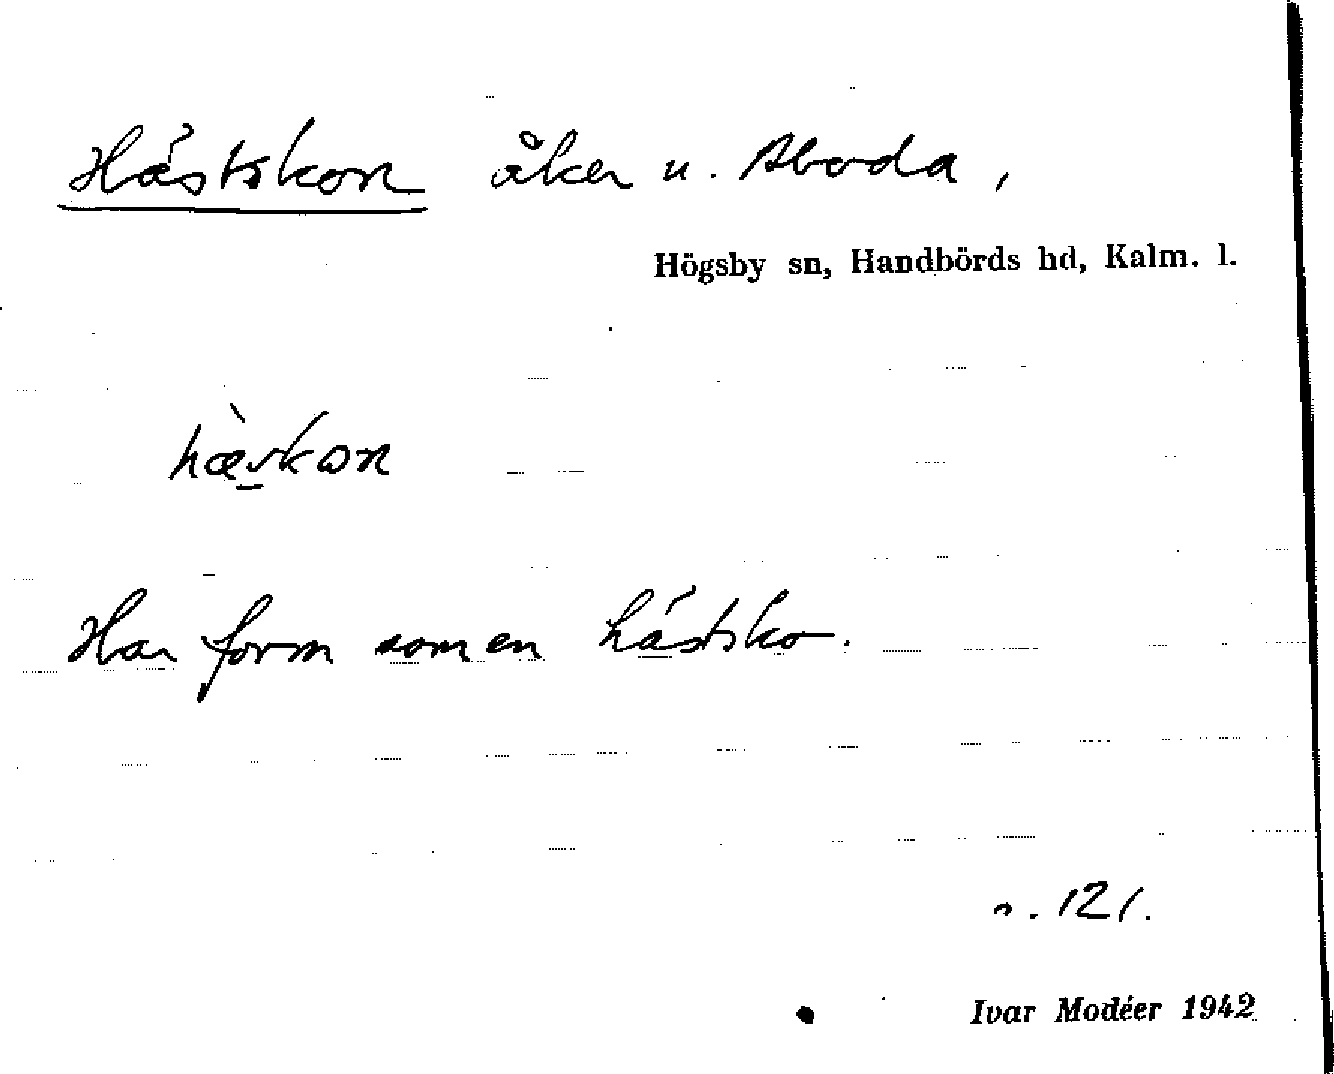 Hästskon åker u. Aboda,
Högsby sn, Handbörds hd, Kalm. l.
Har form som en hästsko.
n. 121.
Ivar Modéer 1942